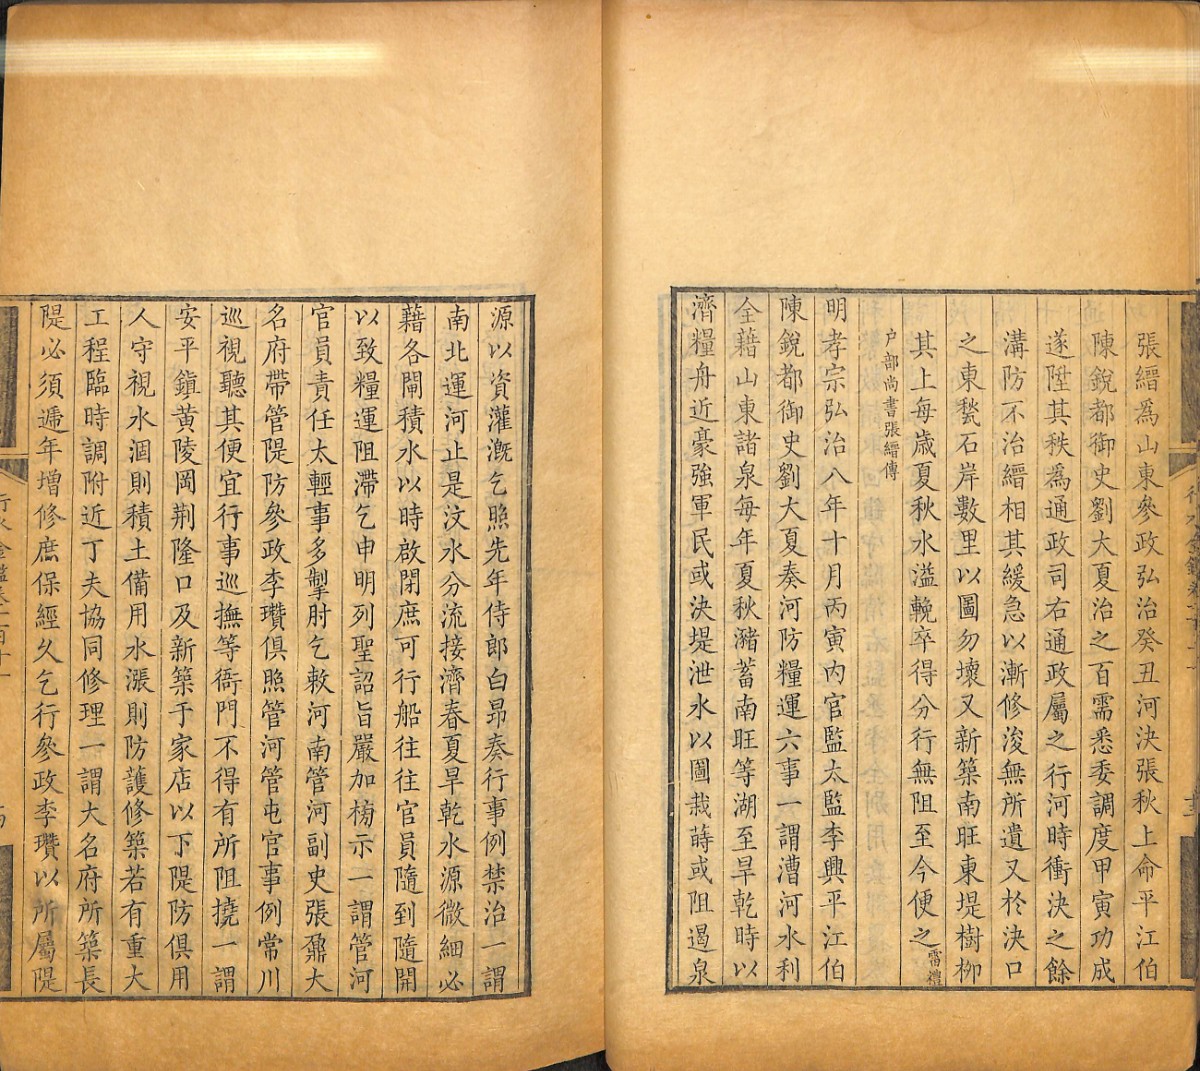 張縉為山東參政弘治癸丑河決張秋上命平江伯
陳銳都御史劉大夏治之百需悉委調度甲寅功成
遂陞其秩為通政司右通政屬之行河時衝決之餘
溝防不治縉相其緩急以漸修浚無所遺又於決口
之東甃石岸數里以圖勿壞又新築南旺東堤樹柳
其上每歲夏秋水溢輓卒得分行無阻至今便之雷禮
戶部尚書張縉傳
明孝宗弘治八年十月丙寅內官監太監李興平江伯
陳銳都御史劉大夏奏河防糧運六事一謂漕河水利
全藉山東諸泉每年夏秋瀦蓄南旺等湖至旱乾時以
濟糧舟近豪強軍民或決堤泄水以圖栽蒔或阻遏泉
源以資灌溉乞照先年侍郎白昂奏行事例禁治一謂
南北運河止是汶水分流接濟春夏旱乾水源微細必
藉各閘積水以時啟閉庶可行船往往官員隨到隨開
以致糧運阻滯乞申明列聖詔旨嚴加榜示一謂管河
官員責任太輕事多掣肘乞敕河南管河副史張鼐大
名府帶管隄防參政李瓚俱照管河管屯官事例常川
巡視聽其便宜行事巡撫等衙門不得有所阻撓一謂
安平鎮黃陵岡荆隆口及新築于家店以下隄防俱用
人守視水涸則積土備用水漲則防護修築若有重大
工程臨時調附近丁夫協同修理一謂大名府所築長
隄必須遞年增修庶保經久乞行參政李瓚以所屬隄